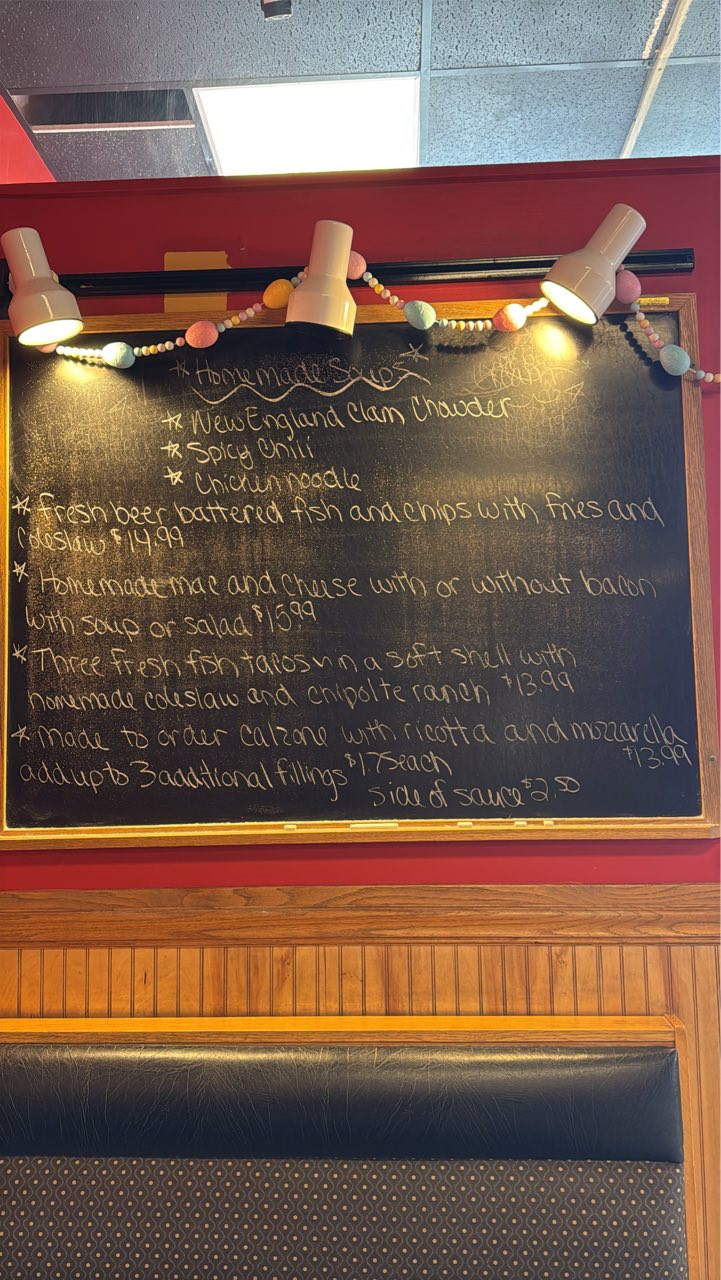 * Homemade Soups *
* New England Clam Chowder
* Spicy Chili
* Chicken noodle
* Fresh beer battered fish and chips with fries and
coleslaw $14.99
* Homemade mac and cheese with or without bacon
with soup or salad $15.99
* Three fresh fish tacos in a soft shell with
homemade coleslaw and chipolte ranch $13.99
* Made to order calzone with ricotta and mozzarella
$13.99
add up to 3 additional fillings $1.75 each
side of sauce $2.50